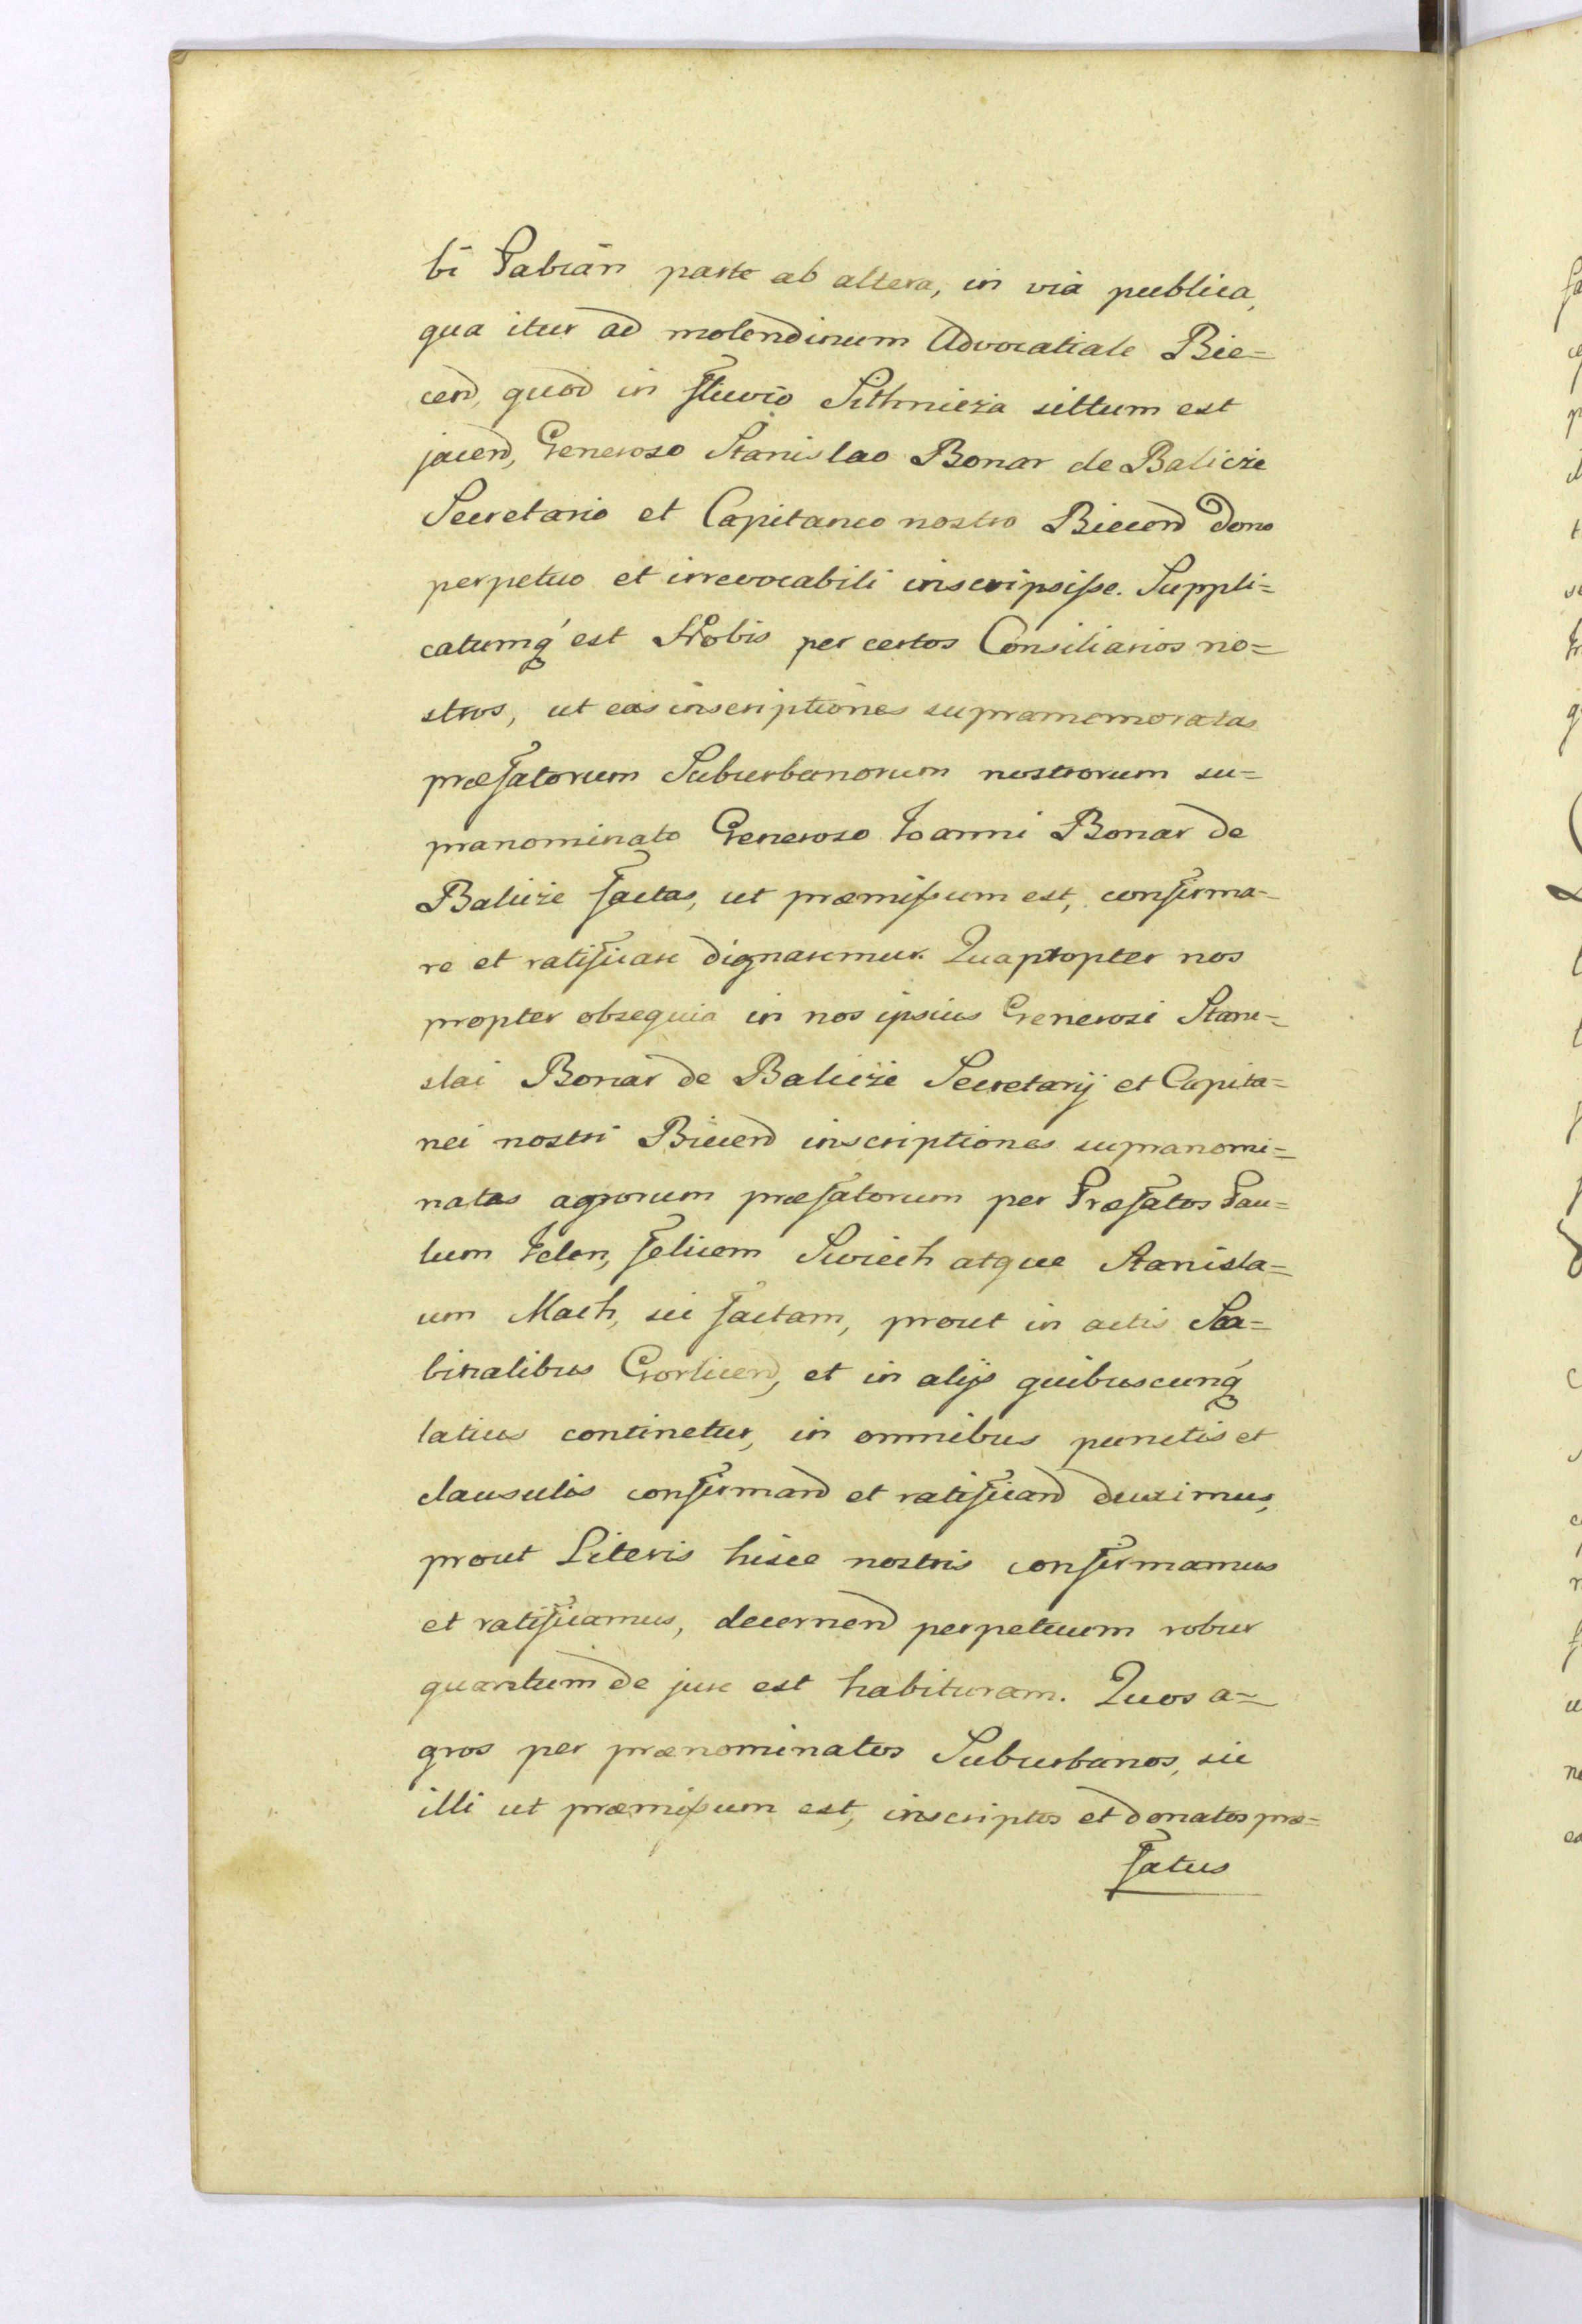 bi Pabian parte ab altera, in via publica,
qua itur ad molendinum Advocatiale Bie=
cen̄d, quod in fluvio Sithnicza sittum est
jacen̄d, Generoso Stanislao Bonar de Balicze
Secretario et Capitaneo nostro Biecen̄d Dono
perpetuo et irrevocabili inscripsiſse. Suppli=
catumq́ est Nobis per certos Consiliarios no=
stros, ut eas inscriptiones supramemoratas
præfatorum Suburbanorum nostrorum su=
pranominato Generoso Ioanni Bonar de
Balicze factas, ut præmiſsum est, confirma=
re et ratificare dignaremur. Quapropter nos
propter obsequia in nos ipsius Generosi Stani=
slai Bonar de Balicze Secretarij et Capita=
nei nostri Biecen̄d inscriptiones supranomi=
natas agrorum præfatorum per Præfatos Pau=
lum Jelen, felicem Swiech atque Stanisla=
um Mach, sic factam, prout in actis Sca=
binalibus Gorlicen̄d, et in alijs quibuscunq́
latius continetur, in omnibus punctis et
clausulis confirman̄d et ratifican̄d duximus,
prout Literis hisce nostris confirmamus
et ratificamus, decernen̄d perpetuum robur
quantum de jure est habituram. Quos a=
gros per prænominatos Suburbanos, sic
illi ut præmiſsum est, inscriptos et donatos præ=
fatus